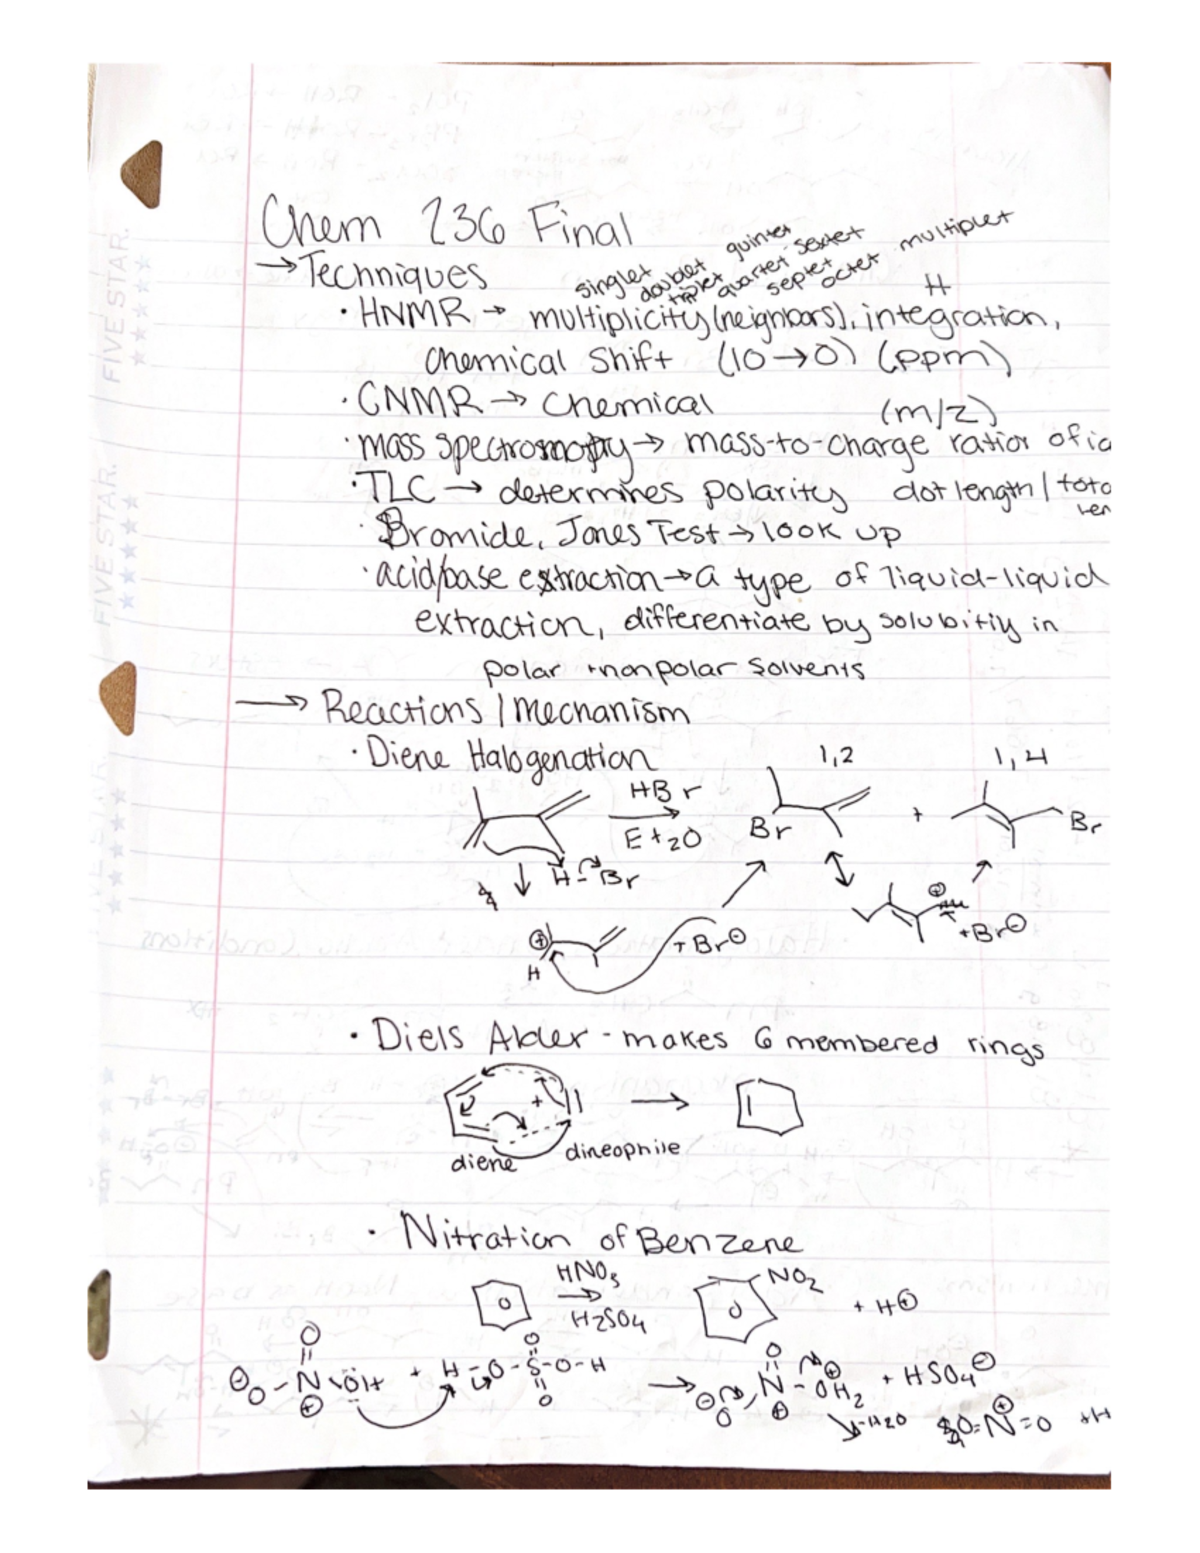 Chem 236 Final
→ Techniques
singlet doublet triplet quartet quintet sextet septet octet multiplet
· HNMR → multiplicity (neighbors), integration, H
chemical shift (10→0) (ppm)
· CNMR → chemical
(m/z)
· mass spectromopy → mass-to-charge ratior of io
· TLC → determines polarity dot length / tota
len
· Bromide, Jones Test → look up
· acid/base extraction → a type of liquid-liquid
extraction, differentiate by solubitiy in
polar + nonpolar solvents
→ Reactions / Mechanism
· Diene Halogenation
1,2
1,4
HBr
Et2O
Br
+
Br
H-Br
⊕
H
+Br⊖
⊕
+Br⊖
· Diels Alder - makes 6 membered rings
+
diene
dineophile
· Nitration of Benzene
HNO3
H2SO4
NO2
+ H⊕
⊖O-N-ÖH
O
⊕
+ H-O-S-O-H
O
O
O
N-OH2
⊕
⊖O
⊕
+ HSO4⊖
-H2O
O=N=O
⊕
+H
FIVE STAR.
FIVE STAR.